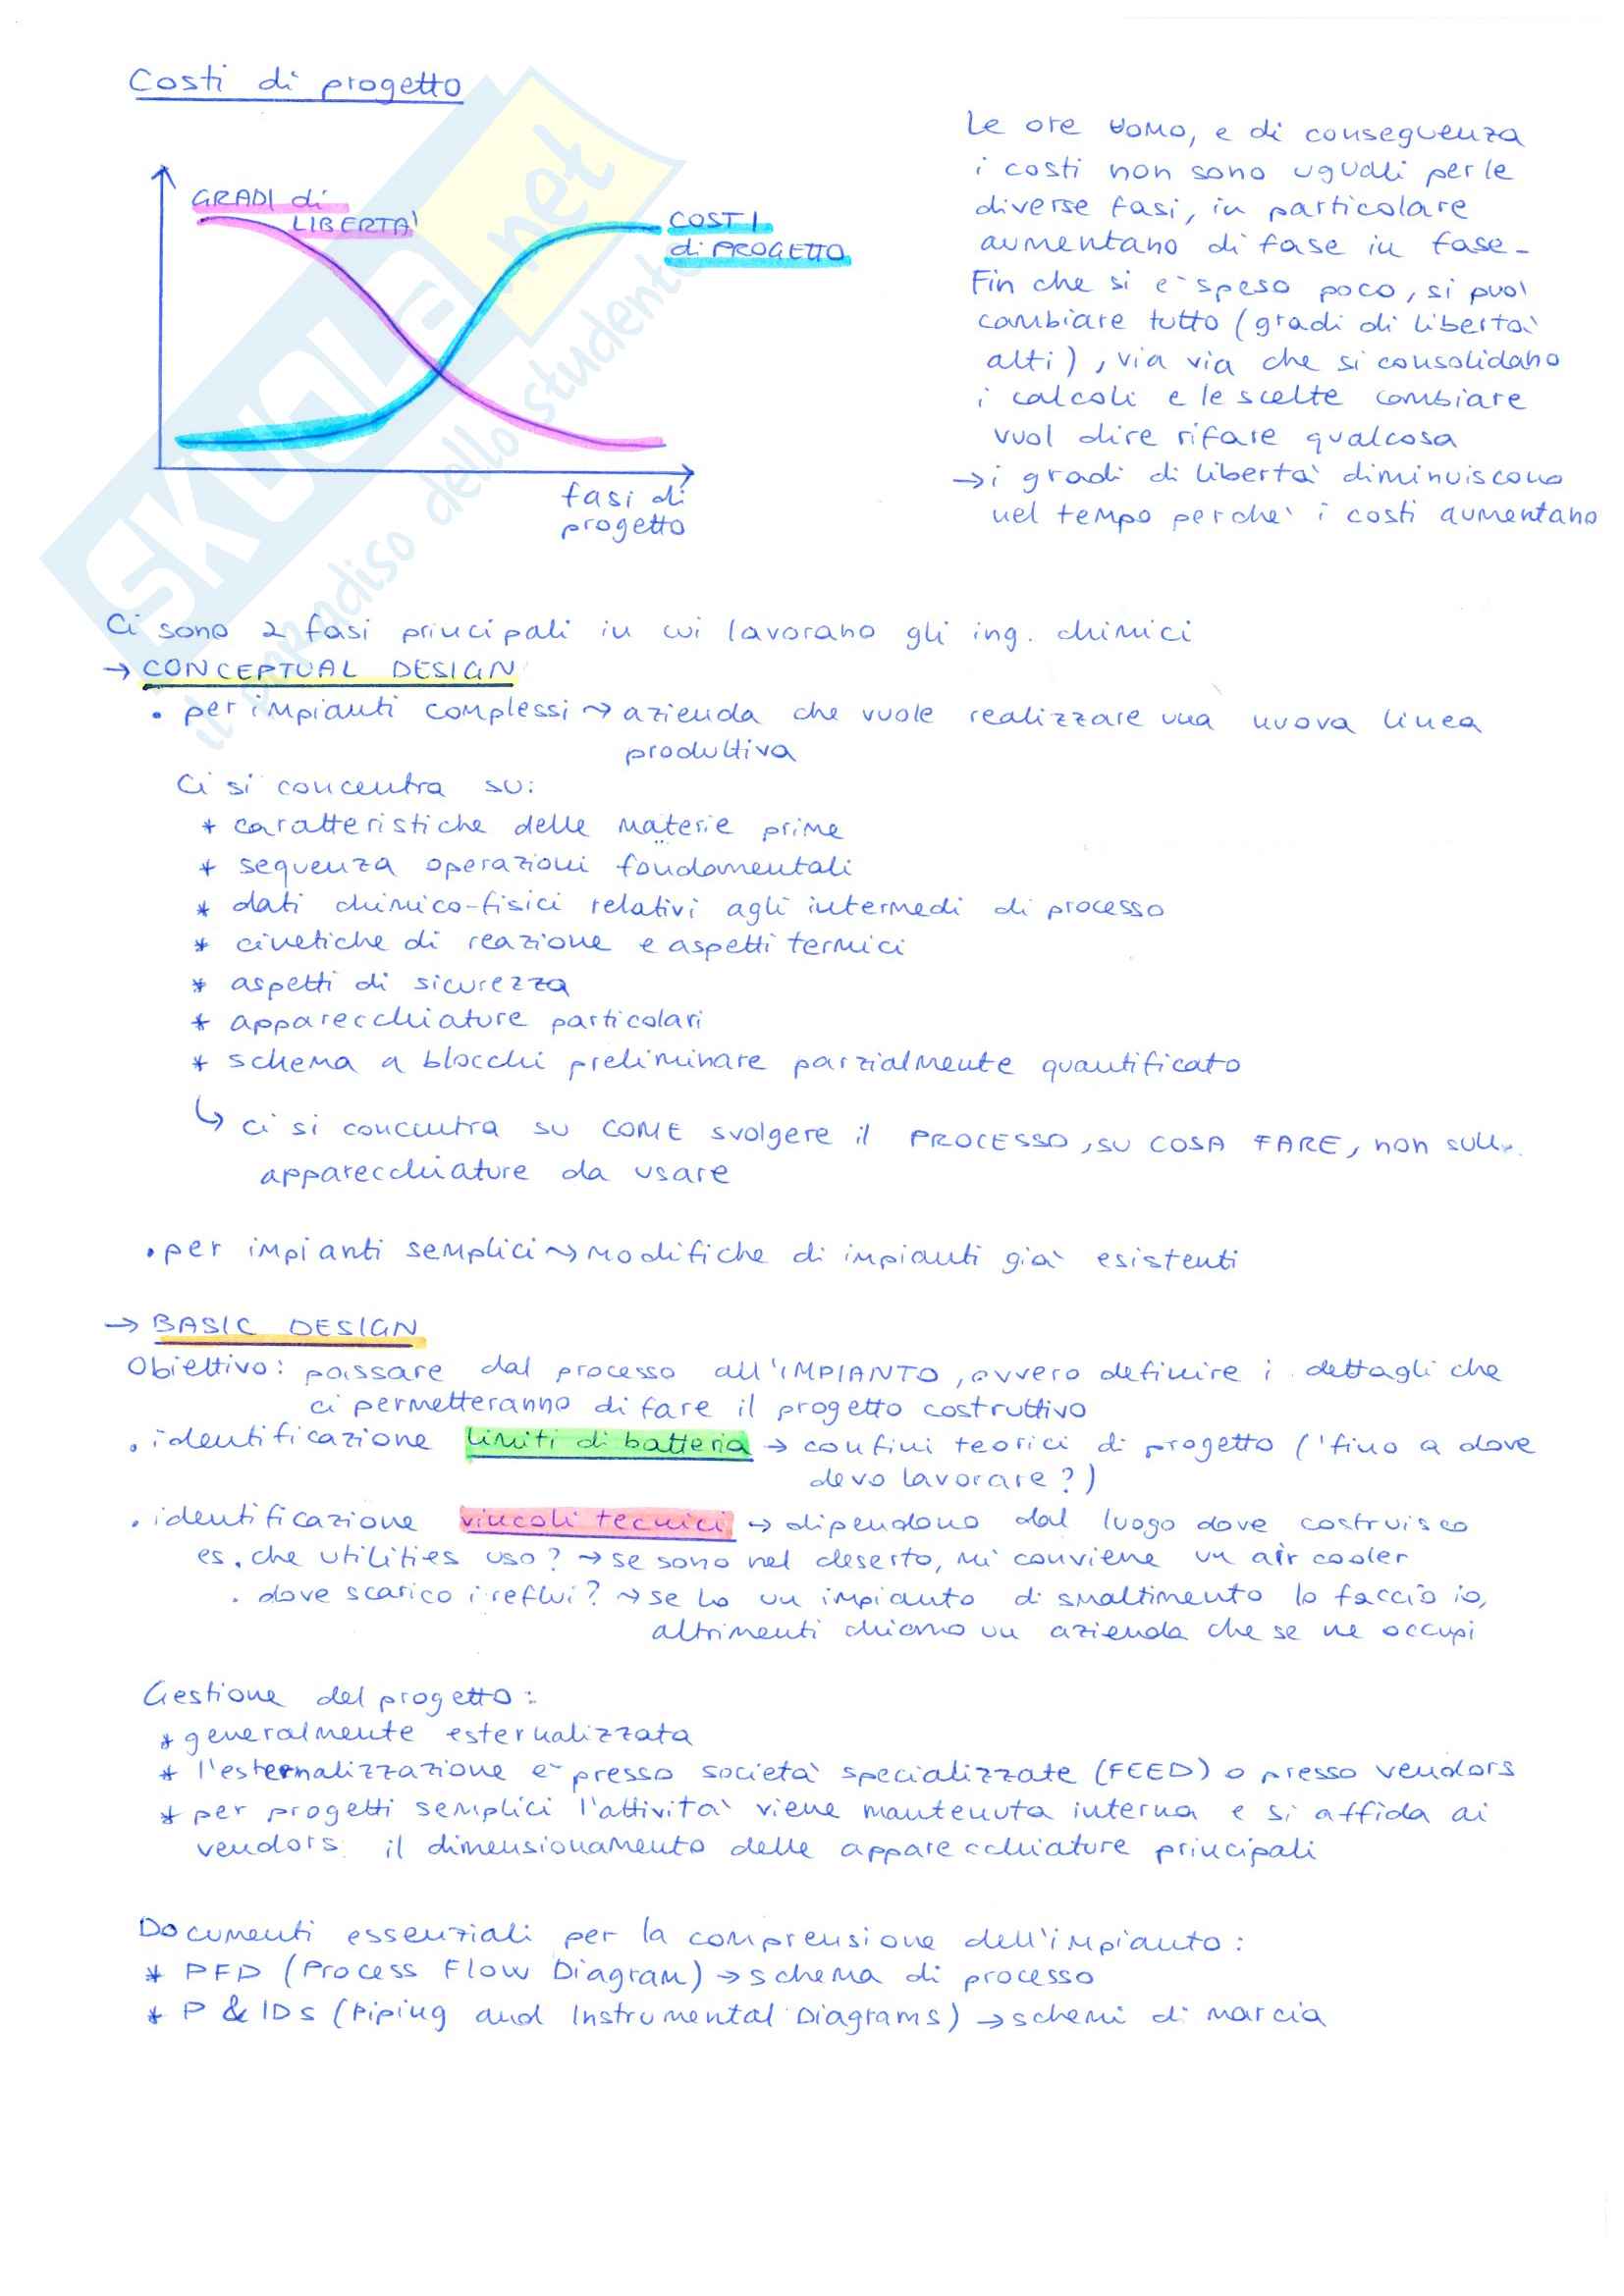 Costi di progetto
GRADI di
LIBERTA'
COSTI
di PROGETTO
fasi di
progetto
Le ore uomo, e di conseguenza
i costi non sono uguali per le
diverse fasi, in particolare
aumentano di fase in fase.
Fin che si e` speso poco, si puo'
cambiare tutto (gradi di liberta`
alti), via via che si consolidano
i calcoli e le scelte cambiare
vuol dire rifare qualcosa
→ i gradi di liberta` diminuiscono
nel tempo perche` i costi aumentano
SKUOLA.net
il paradiso dello studente
Ci sono 2 fasi principali in cui lavorano gli ing. chimici
→ CONCEPTUAL DESIGN
• per impianti complessi ↝ azienda che vuole realizzare una nuova linea
produttiva
Ci si concentra su:
* caratteristiche delle materie prime
* sequenza operazioni fondamentali
* dati chimico-fisici relativi agli intermedi di processo
* cinetiche di reazione e aspetti termici
* aspetti di sicurezza
* apparecchiature particolari
* schema a blocchi preliminare parzialmente quantificato
↳ ci si concentra su COME svolgere il PROCESSO, su COSA FARE, non sull
apparecchiature da usare
• per impianti semplici ↝ modifiche di impianti gia` esistenti
→ BASIC DESIGN
Obiettivo: passare dal processo all'IMPIANTO, ovvero definire i dettagli che
ci permetteranno di fare il progetto costruttivo
• identificazione limiti di batteria → confini teorici di progetto ('fino a dove
devo lavorare?)
• identificazione vincoli tecnici → dipendono dal luogo dove costruisco
es. che utilities uso? → se sono nel deserto, mi conviene un air cooler
• dove scarico i reflui? → se ho un impianto di smaltimento lo faccio io,
altrimenti chiamo un azienda che se ne occupi
Gestione del progetto:
* generalmente esternalizzata
* l'esternalizzazione e` presso societa` specializzate (FEED) o presso vendors
* per progetti semplici l'attivita` viene mantenuta interna e si affida ai
vendors il dimensionamento delle apparecchiature principali
Documenti essenziali per la comprensione dell'impianto:
* PFD (Process Flow Diagram) → schema di processo
* P & IDs (Piping and Instrumental Diagrams) → schemi di marcia